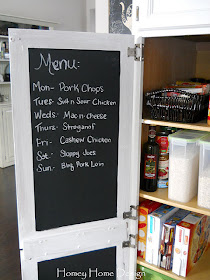 Menu:
Mon- Pork Chops
Tues- Swt n Sour Chicken
Weds- Mac-n-cheese
Thurs- Stroganoff
Fri- Cashew Chicken
Sat- Sloppy Joes
Sun- BBQ Pork Loin
Honey Home Design